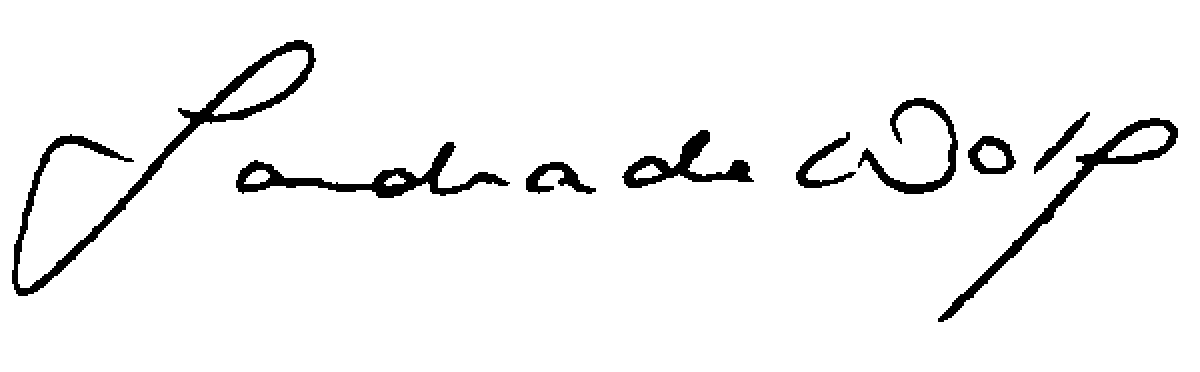 Sandra de Wolf